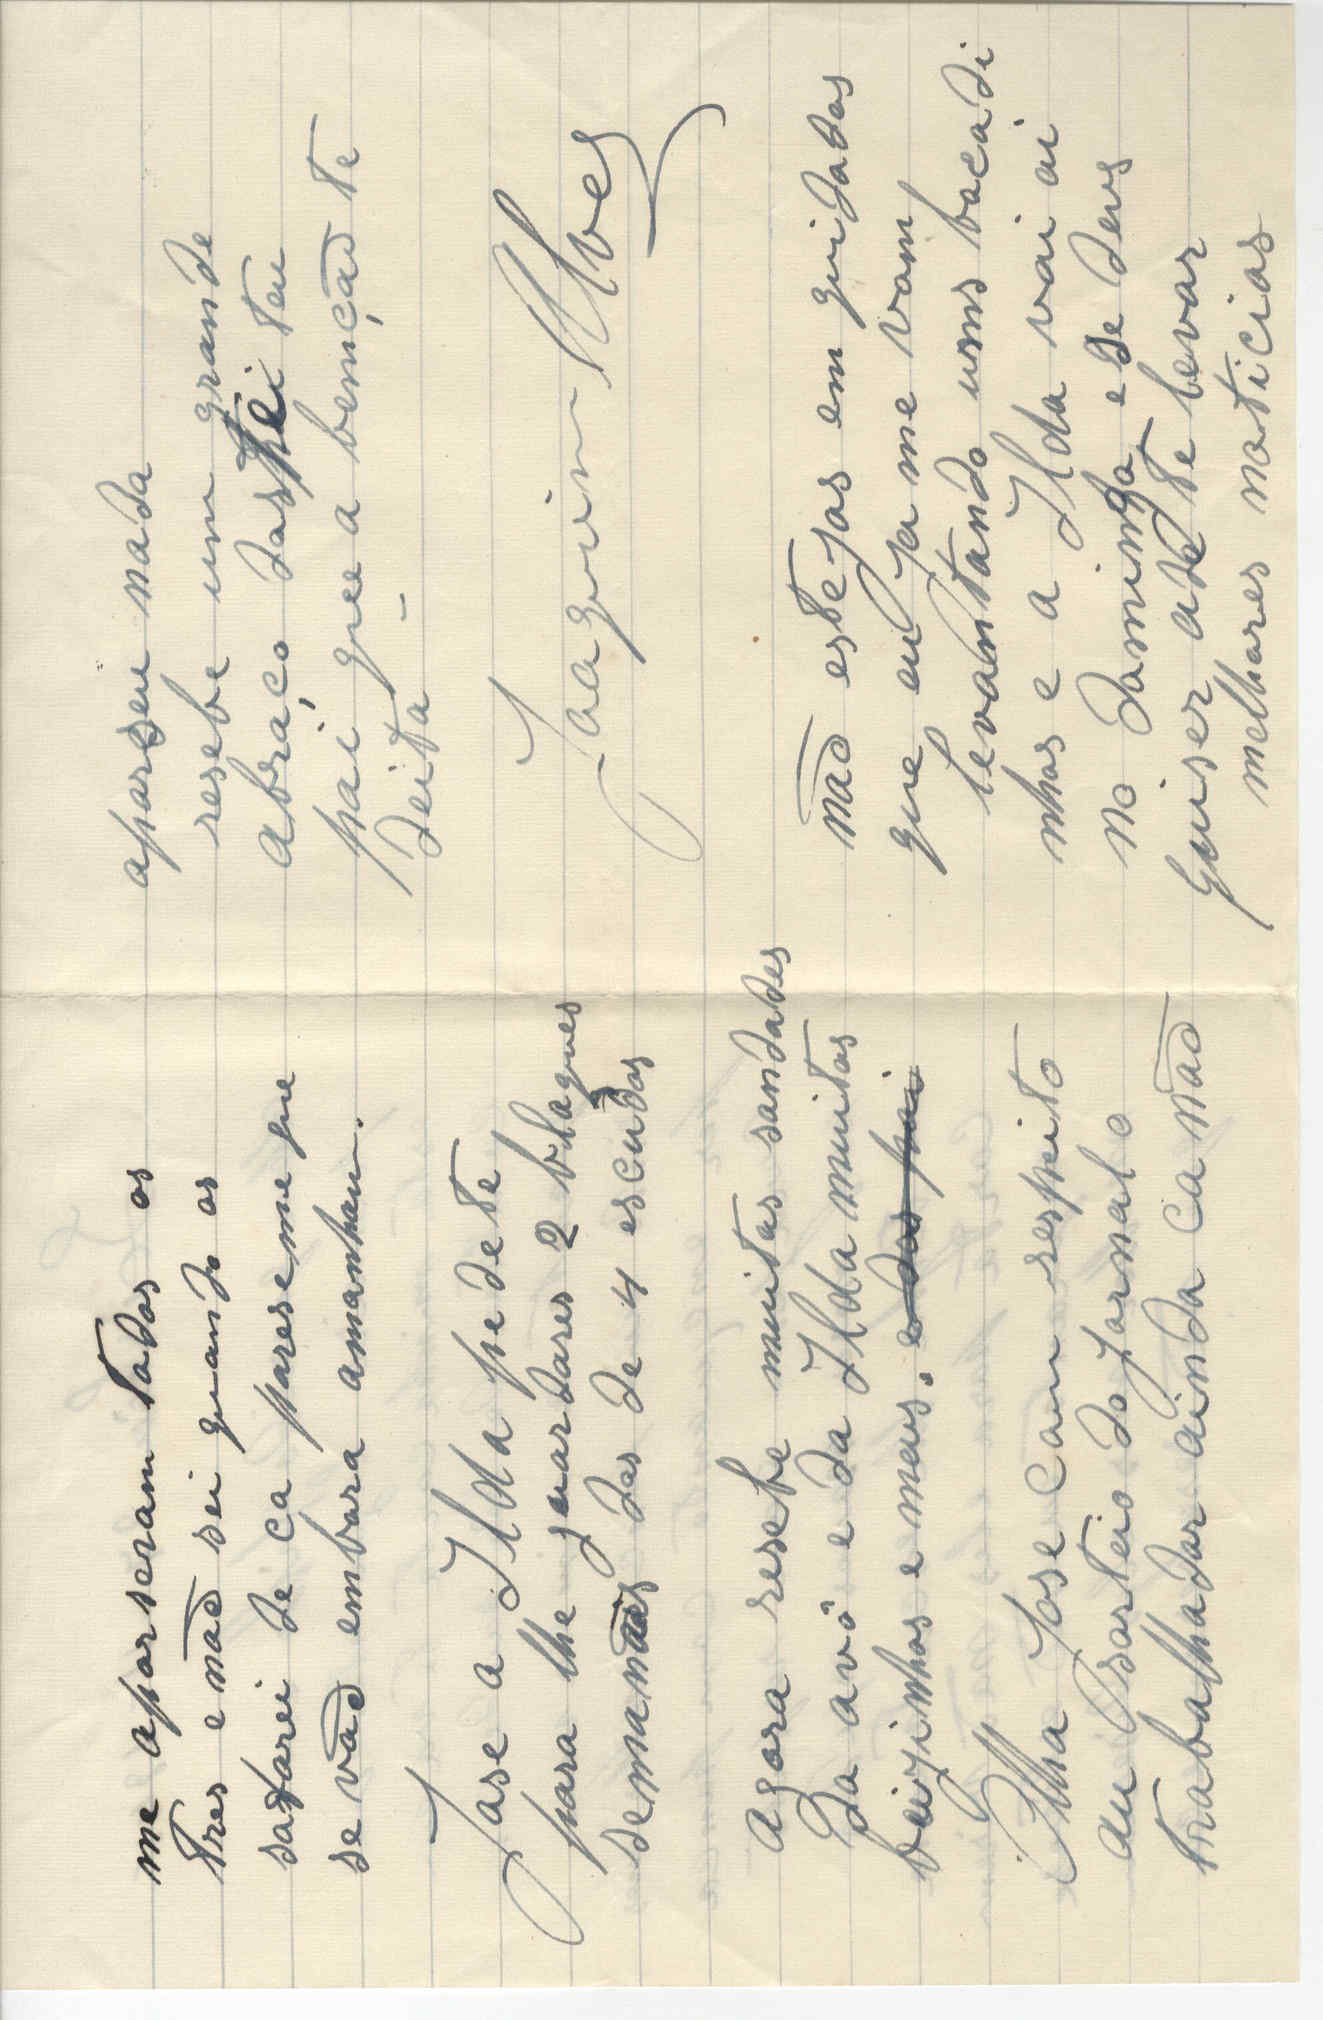 me aparseram todos os
tres e não sei quando os
satarei de ca pareseme que
se vão embora amanhau.
Jose a Ilda pedete
para lhe guardares 2 blaques
semanaes das de 4 escudos
agora resebe muitas saudades
da avô e da Ilda muitas
beijinhos e meus. e dos pai
Olha Jose com respeito
au sarteio do jornal o
trabalhador ainda ca não
aparseu nada
resebe um grande
abraço das pei teu
pai que a bemção te
deita –
Joaquim Alves
não estejas em quidados
que eu ja me vam
levantando uns bocadi
nhos e a Ilda vai ai
no daminga e se deus
quiser ade te levar
melhores noticias